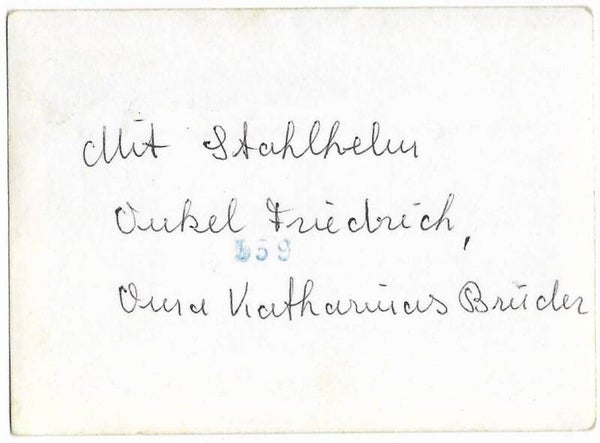 Mit Stahlhelm
Onkel Friedrich,
559
Oma Katharinas Brüder